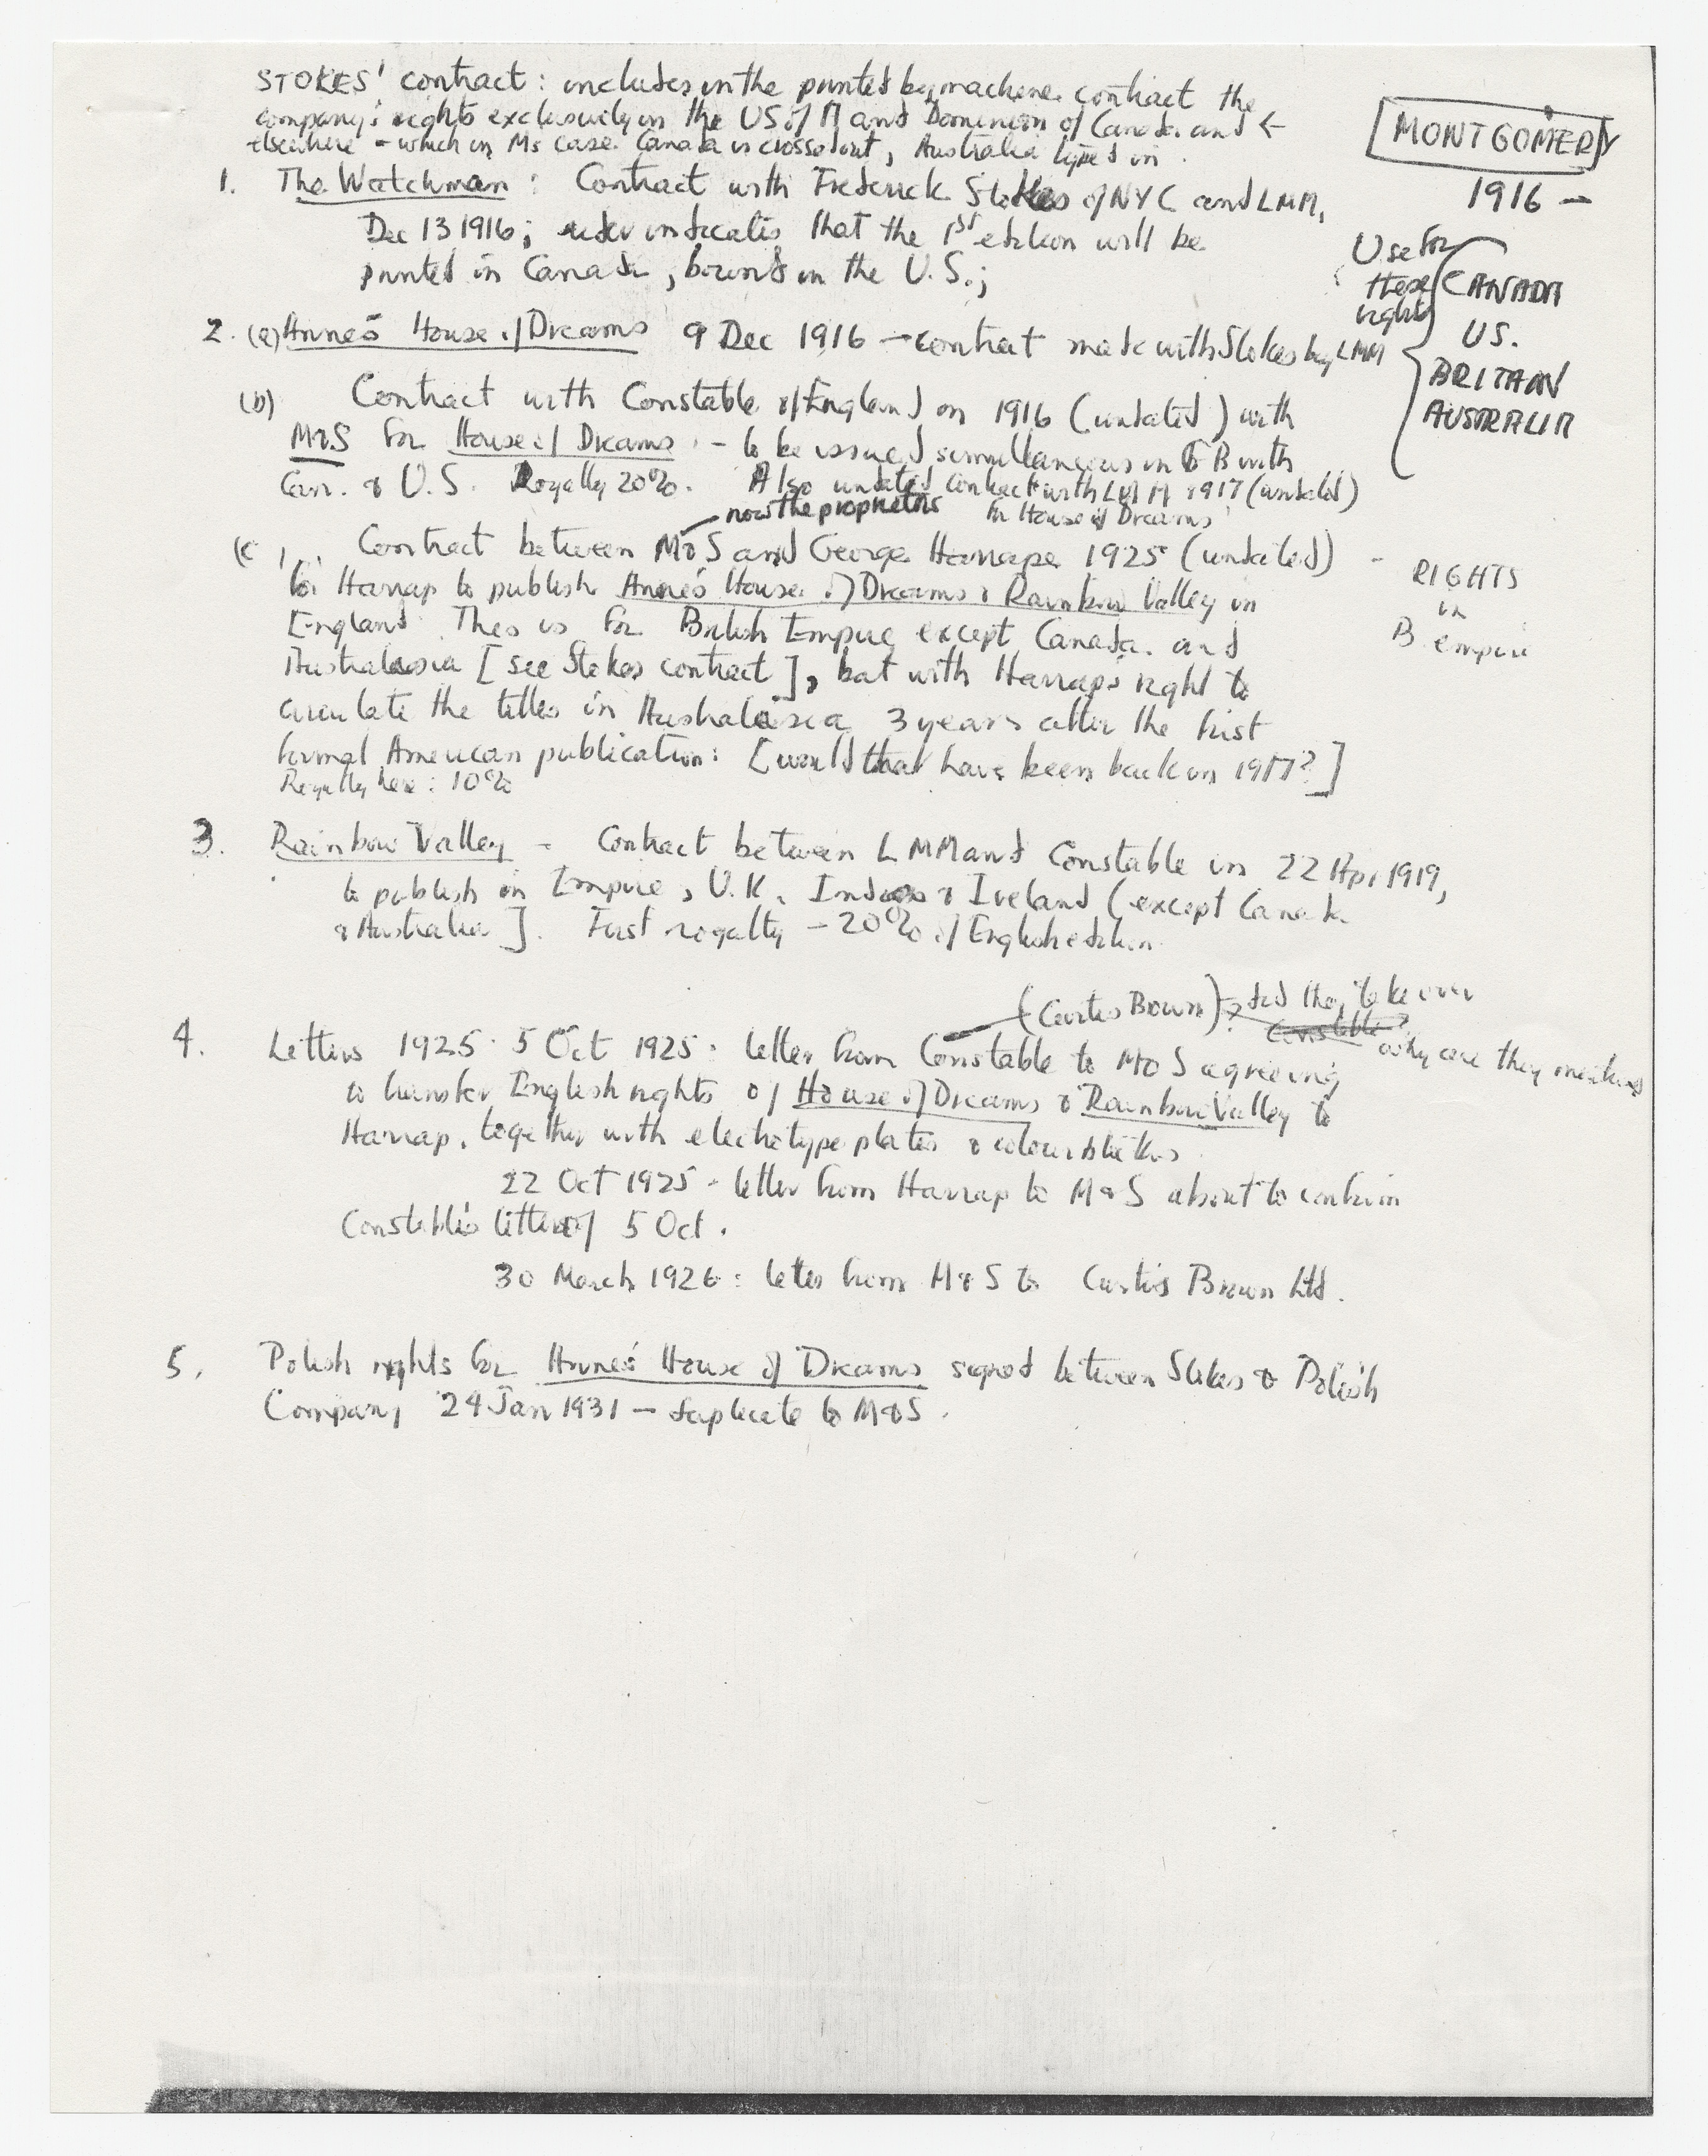 STOKES' contract: includes in the printed by machine contract the
company's rights exclusively in the US of A and Dominion of Canada and ←
elsewhere - which in M's case Canada is crossed out, Australia typed in.
MONTGOMERY
1916 —
1. The Watchman: Contract with Frederick Stokes of NYC and LMM,
Dec 13 1916; rider indicates that the 1st edition will be
printed in Canada, bound in the U.S.;
Use for
these
rights
CANADA
US.
BRITAIN
AUSTRALIA
2. (a) Anne's House of Dreams 9 Dec 1916 — contract made with Stokes by LMM
(b) Contract with Constable of England on 1916 (undated) with
M&S for House of Dreams - to be issued simultaneous in GB with
Can. & U.S. Royalty 20%. Also undated contract with LMM 1917 (undated)
for House of Dreams
now the proprietors
(c Contract between M&S and George Harrap 1925 (undated) -
for Harrap to publish Anne's House of Dreams & Rainbow Valley in
England. This is for British Empire except Canada and
Australasia [see Stokes contract], but with Harrap's right to
circulate the titles in Australasia 3 years after the first
formal American publication: [would that have been back in 1917?]
Royalty here: 10%
RIGHTS
in
B. empire
3. Rainbow Valley - Contract between LMM and Constable in 22 Apr 1919,
to publish in Empire, U.K., India & Ireland (except Canada
& Australia]. First royalty - 20% of English edition.
(Curtis Brown)? did they take over
Constable? or why are they mentioned
4. Letters 1925. 5 Oct 1925: letter from Constable to M&S agreeing
to transfer English rights of House of Dreams & Rainbow Valley to
Harrap, together with electrotype plates & colour blocks.
22 Oct 1925 - letter from Harrap to M&S about to confirm
Constable's letter of 5 Oct.
30 March 1926: letter from M&S to Curtis Brown Ltd.
5. Polish rights for Anne's House of Dreams signed between Stokes & Polish
Company 24 Jan 1931 — duplicate to M&S.